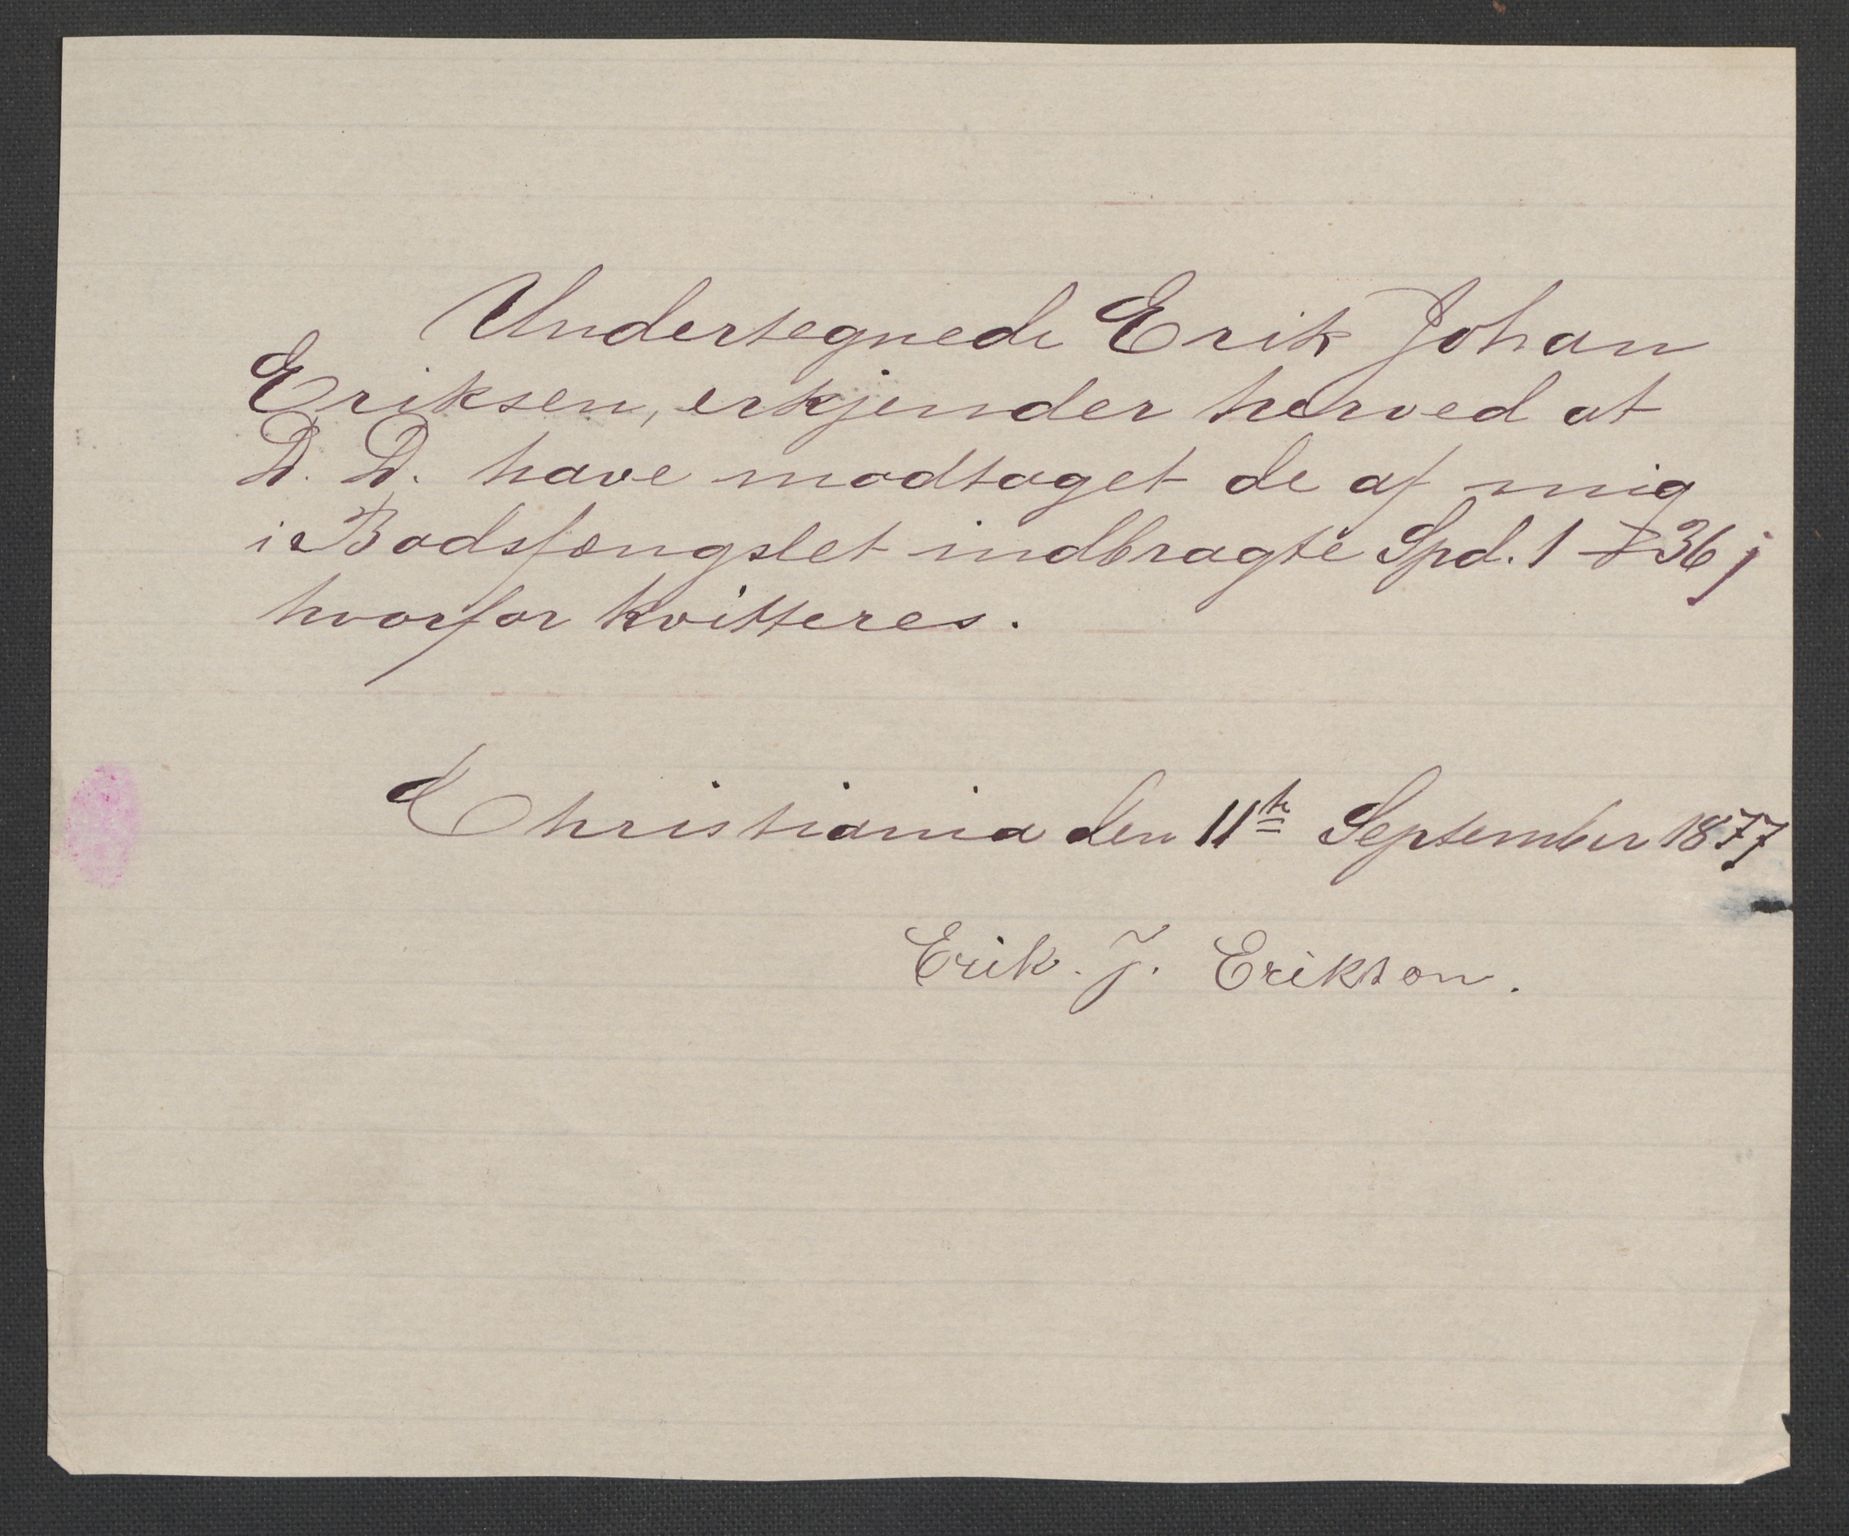 Undertegnede Erik Johan
Eriksen, erkjender herved at
D. D. have modtaget de af mig
i Bodsfængslet indbragte Spd. 1 ß 36 j
hvorfor kvitteres.
Christiania den 11te September 1877
Erik. J. Erikson.